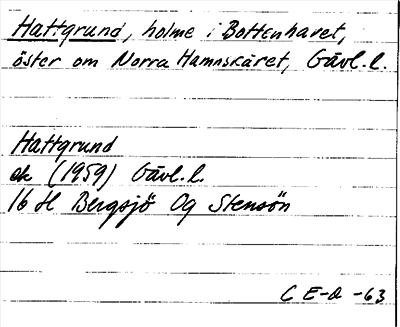 Hattgrund, holme i Bottenhavet,
öster om Norra Hamnskäret, Gävl.l.
Hattgrund
ek (1959) Gävl.l.
16 H Bergsjö Og Stensön
C E-d -63